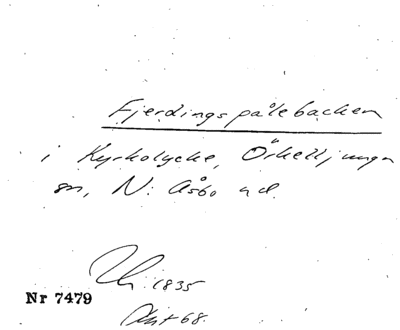 Fjerdingspålebacken
i Kyrkolycke, Örkelljunga
sn, N. Åsbo hd.
1835
Nr 7479
68.